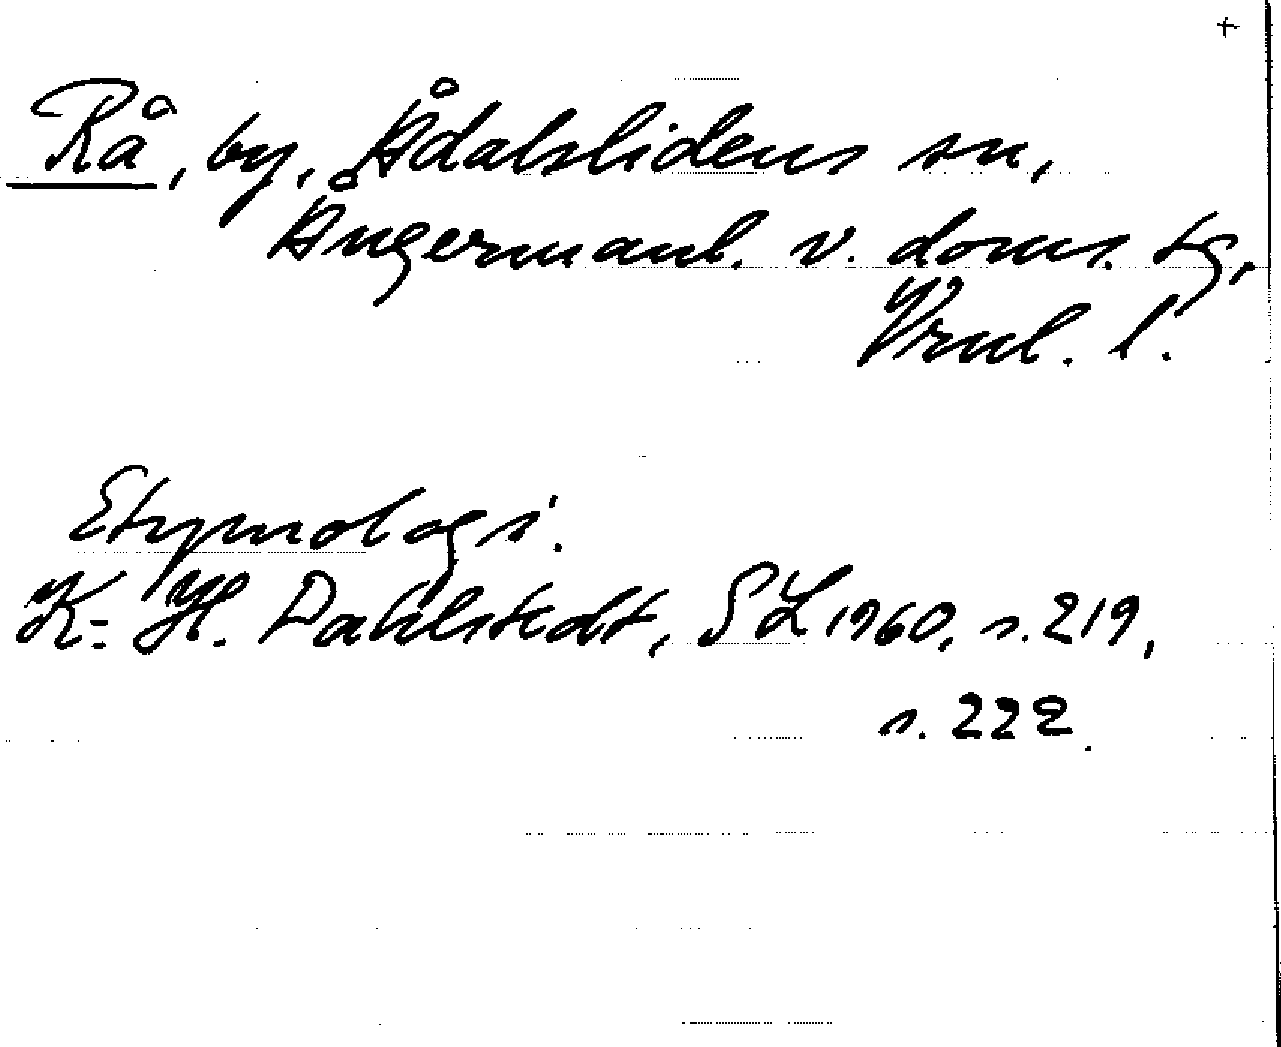 +
Rå, by, Ådalslidens sn,
Ångermanl. v. doms. tg,
Vrnl. l.
Etymologi.
K.-H. Dahlstedt, SL 1960, s. 219,
s. 222.